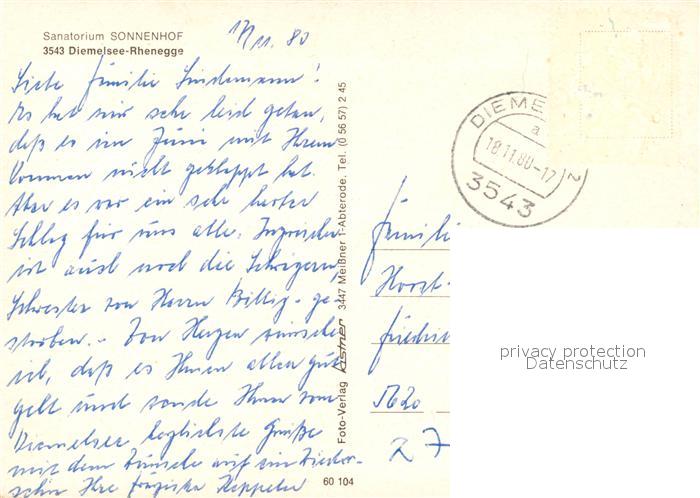 Sanatorium SONNENHOF
3543 Diemelsee-Rhenegge
17/11. 80
Liebe Familie Lindemann!
Es hat mir sehr leid getan,
daß es im Juni mit Ihrem
Kommen nicht geklappt hat.
Aber es war ein sehr harter
Schlag für uns alle. Inzwischen
ist auch noch die Schwägerin,
Schwester von Herrn Billig, ge-
storben. - Von Herzen wünsche
ich, daß es Ihnen allen gut
geht und sende Ihnen vom
Diemelsee herzlichste Grüße
mit dem Wunsche auf ein Wieder-
sehn Ihre Franziska Keppeler
Foto-Verlag kistner 3447 Meißner 1-Abterode. Tel. (0 56 57) 2 45
60 104
DIEME
a
18.11.80-17
2
3543
Famili
Horst
Friedri
5620
27
privacy protection
Datenschutz